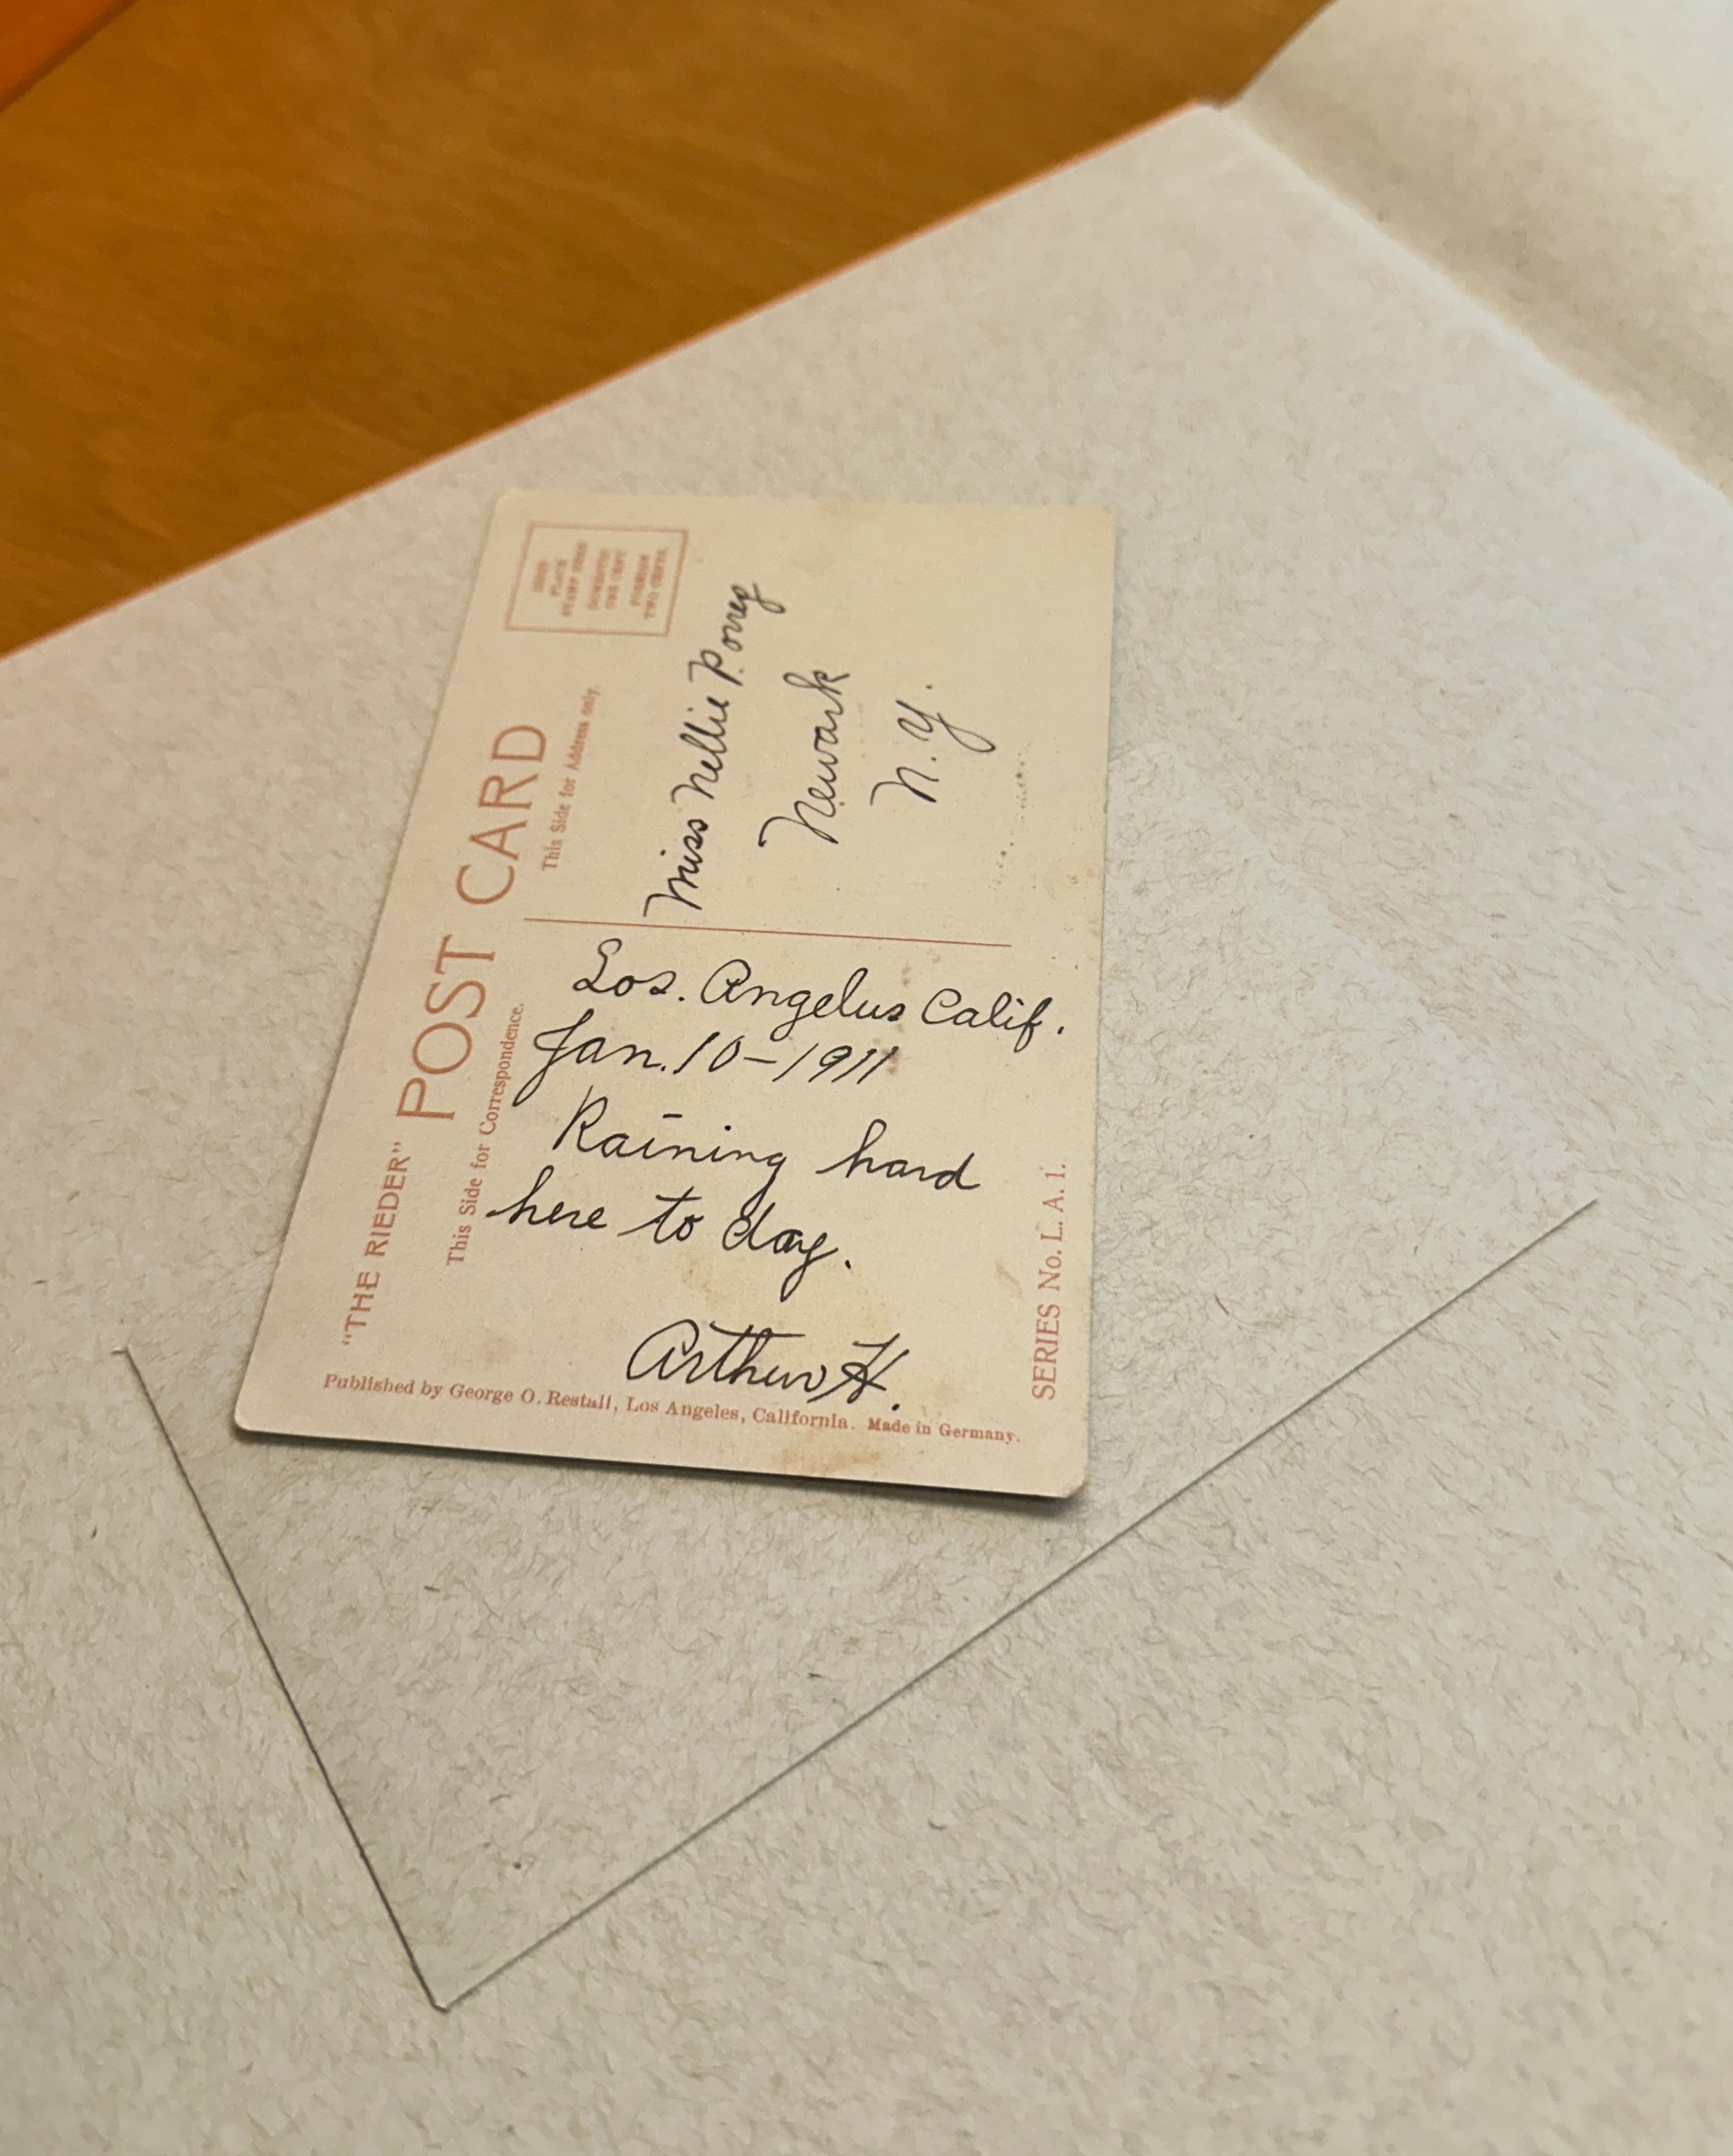 "THE RIEDER" POST CARD
This Side for Correspondence.
This Side for Address only.
PLACE
STAMP HERE
DOMESTIC
ONE CENT
FOREIGN
TWO CENTS
Miss Nellie
Newark
N.Y.
Los. Angelus Calif.
Jan. 10-1911
Raining hard
here to day.
Arthur H.
Published by George O. Restall, Los Angeles, California. Made in Germany.
SERIES No. L. A. 1.